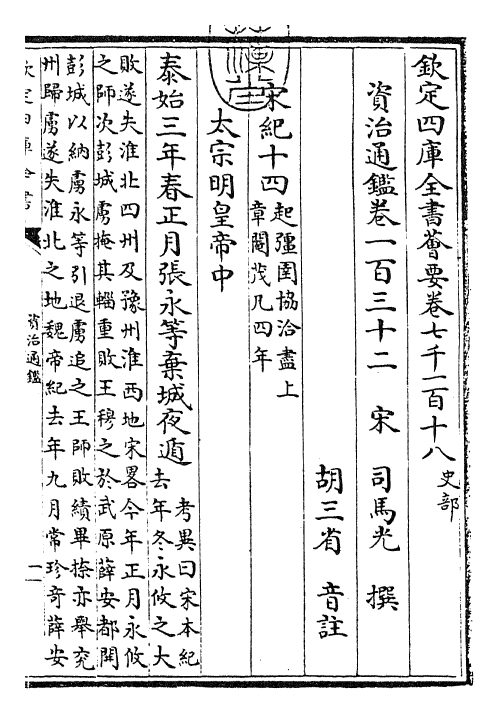 欽定四庫全書薈要卷七千一百十八 史部
資治通鑑卷一百三十二 宋 司馬光 撰
胡三省 音註
宋紀十四
起彊圉協洽盡上
章閹茂凡四年
太宗明皇帝中
泰始三年春正月張永等棄城夜遁
考異曰宋本紀
去年冬永攸之大
敗遂失淮北四州及豫州淮西地宋畧今年正月永攸
之師次彭城虜掩其輜重敗王穆之於武原薛安都開
彭城以納虜永等引退虜追之王師敗績畢捺亦舉兖
州歸虜遂失淮北之地魏帝紀去年九月常珍奇薛安
欽定四庫全書
資治通鑑
一